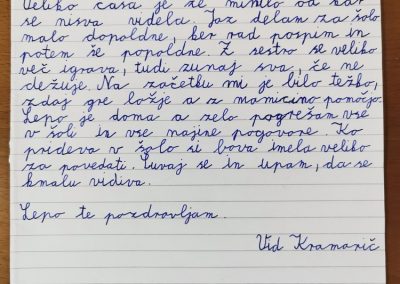 Veliko časa je že minilo od kar
se nisva videla. Jaz delam za šolo
malo dopoldne, ker rad pospim in
potem še popoldne. Z sestro se veliko
več igrava, tudi zunaj sva, če ne
dežuje. Na začetku mi je bilo težko,
zdaj gre ložje a z mamicino pomočjo.
Lepo je doma a zelo pogrešam vse
v šoli in vse najine pogovore. Ko
prideva v šolo si bova imela veliko
za povedati. Čuvaj se in upam, da se
kmalu vidiva.
Lepo te pozdravljam.
Vid Kramarič